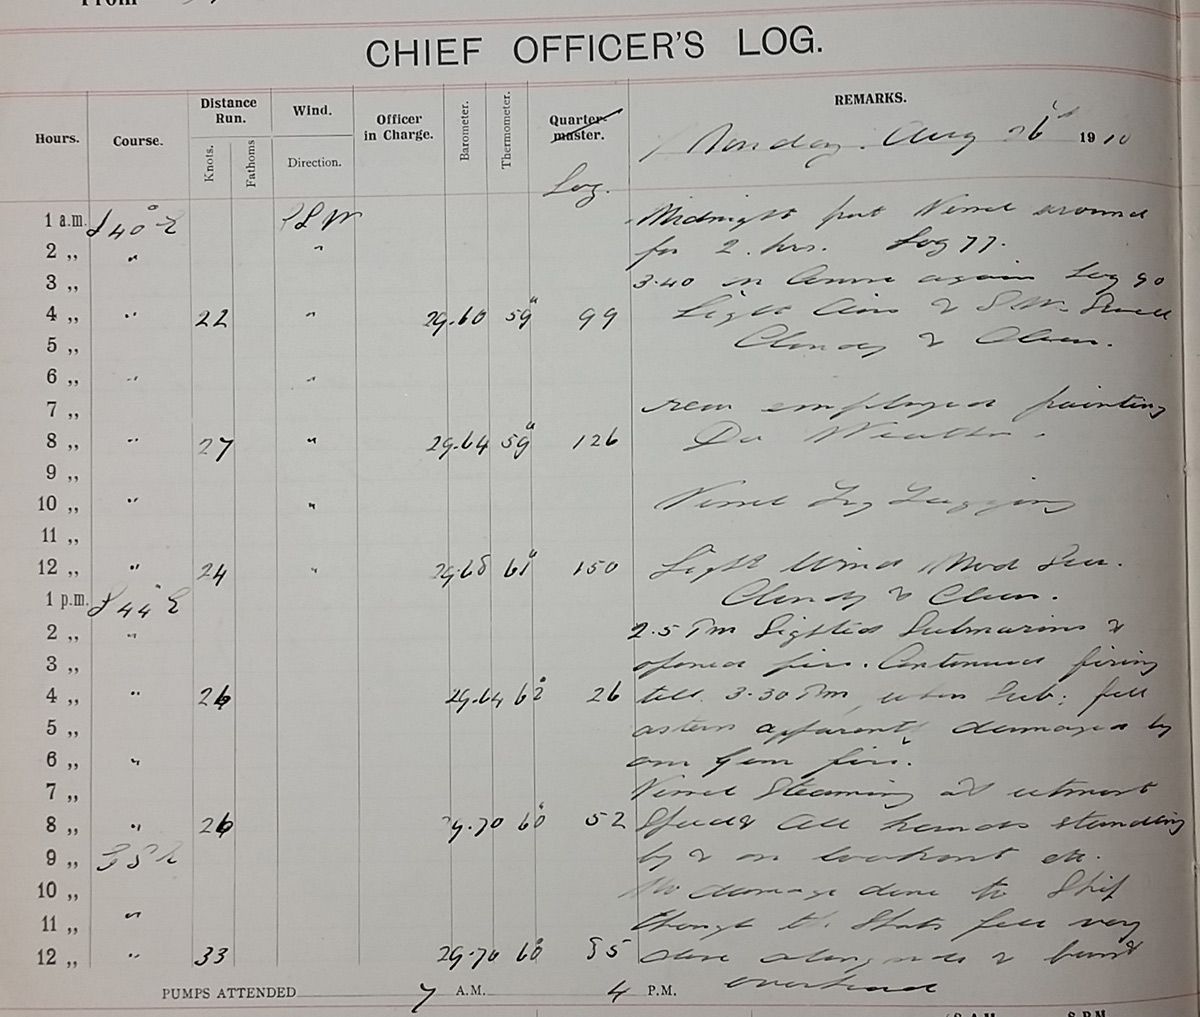 CHIEF OFFICER'S LOG.
Hours. Course. Distance Run. Wind. Officer in Charge. Barometer. Thermometer. Quarter-master. REMARKS.
Knots. Fathoms Direction. Log. Monday Aug 26th 1910
1 a.m. S 40° E SSW Midnight put Vessel around
2 ,, " " for 2 hrs. Log 77.
3 ,, 3.40 on Course again Log 90
4 ,, " 22 " 29.60 59° 99 Light Airs & S.W. Swell
5 ,, Cloudy & Clear.
6 ,, " "
7 ,, Crew employed painting
8 ,, " 27 " 29.64 59° 126 Do Weather.
9 ,,
10 ,, " " Vessel Zig Zagging
11 ,,
12 ,, " 24 " 29.68 61° 150 Light Wind Mod Sea.
1 p.m. S 44° E Cloudy & Clear.
2 ,, " 2.5 Pm Sighted Submarine &
3 ,, opened fire. Continued firing
4 ,, " 26 29.64 62° 26 till 3.30 Pm, when Sub: fell
5 ,, astern apparently damaged by
6 ,, " our Gun fire.
7 ,, Vessel Steaming at utmost
8 ,, " 26 29.70 60° 52 Speed & all hands standing
9 ,, by & on lookout etc.
10 ,, No damage done to Ship
11 ,, " though the Shots fell very
12 ,, " 33 29.70 60° 85 close alongside & burst
overhead
PUMPS ATTENDED 7 A.M. 4 P.M.